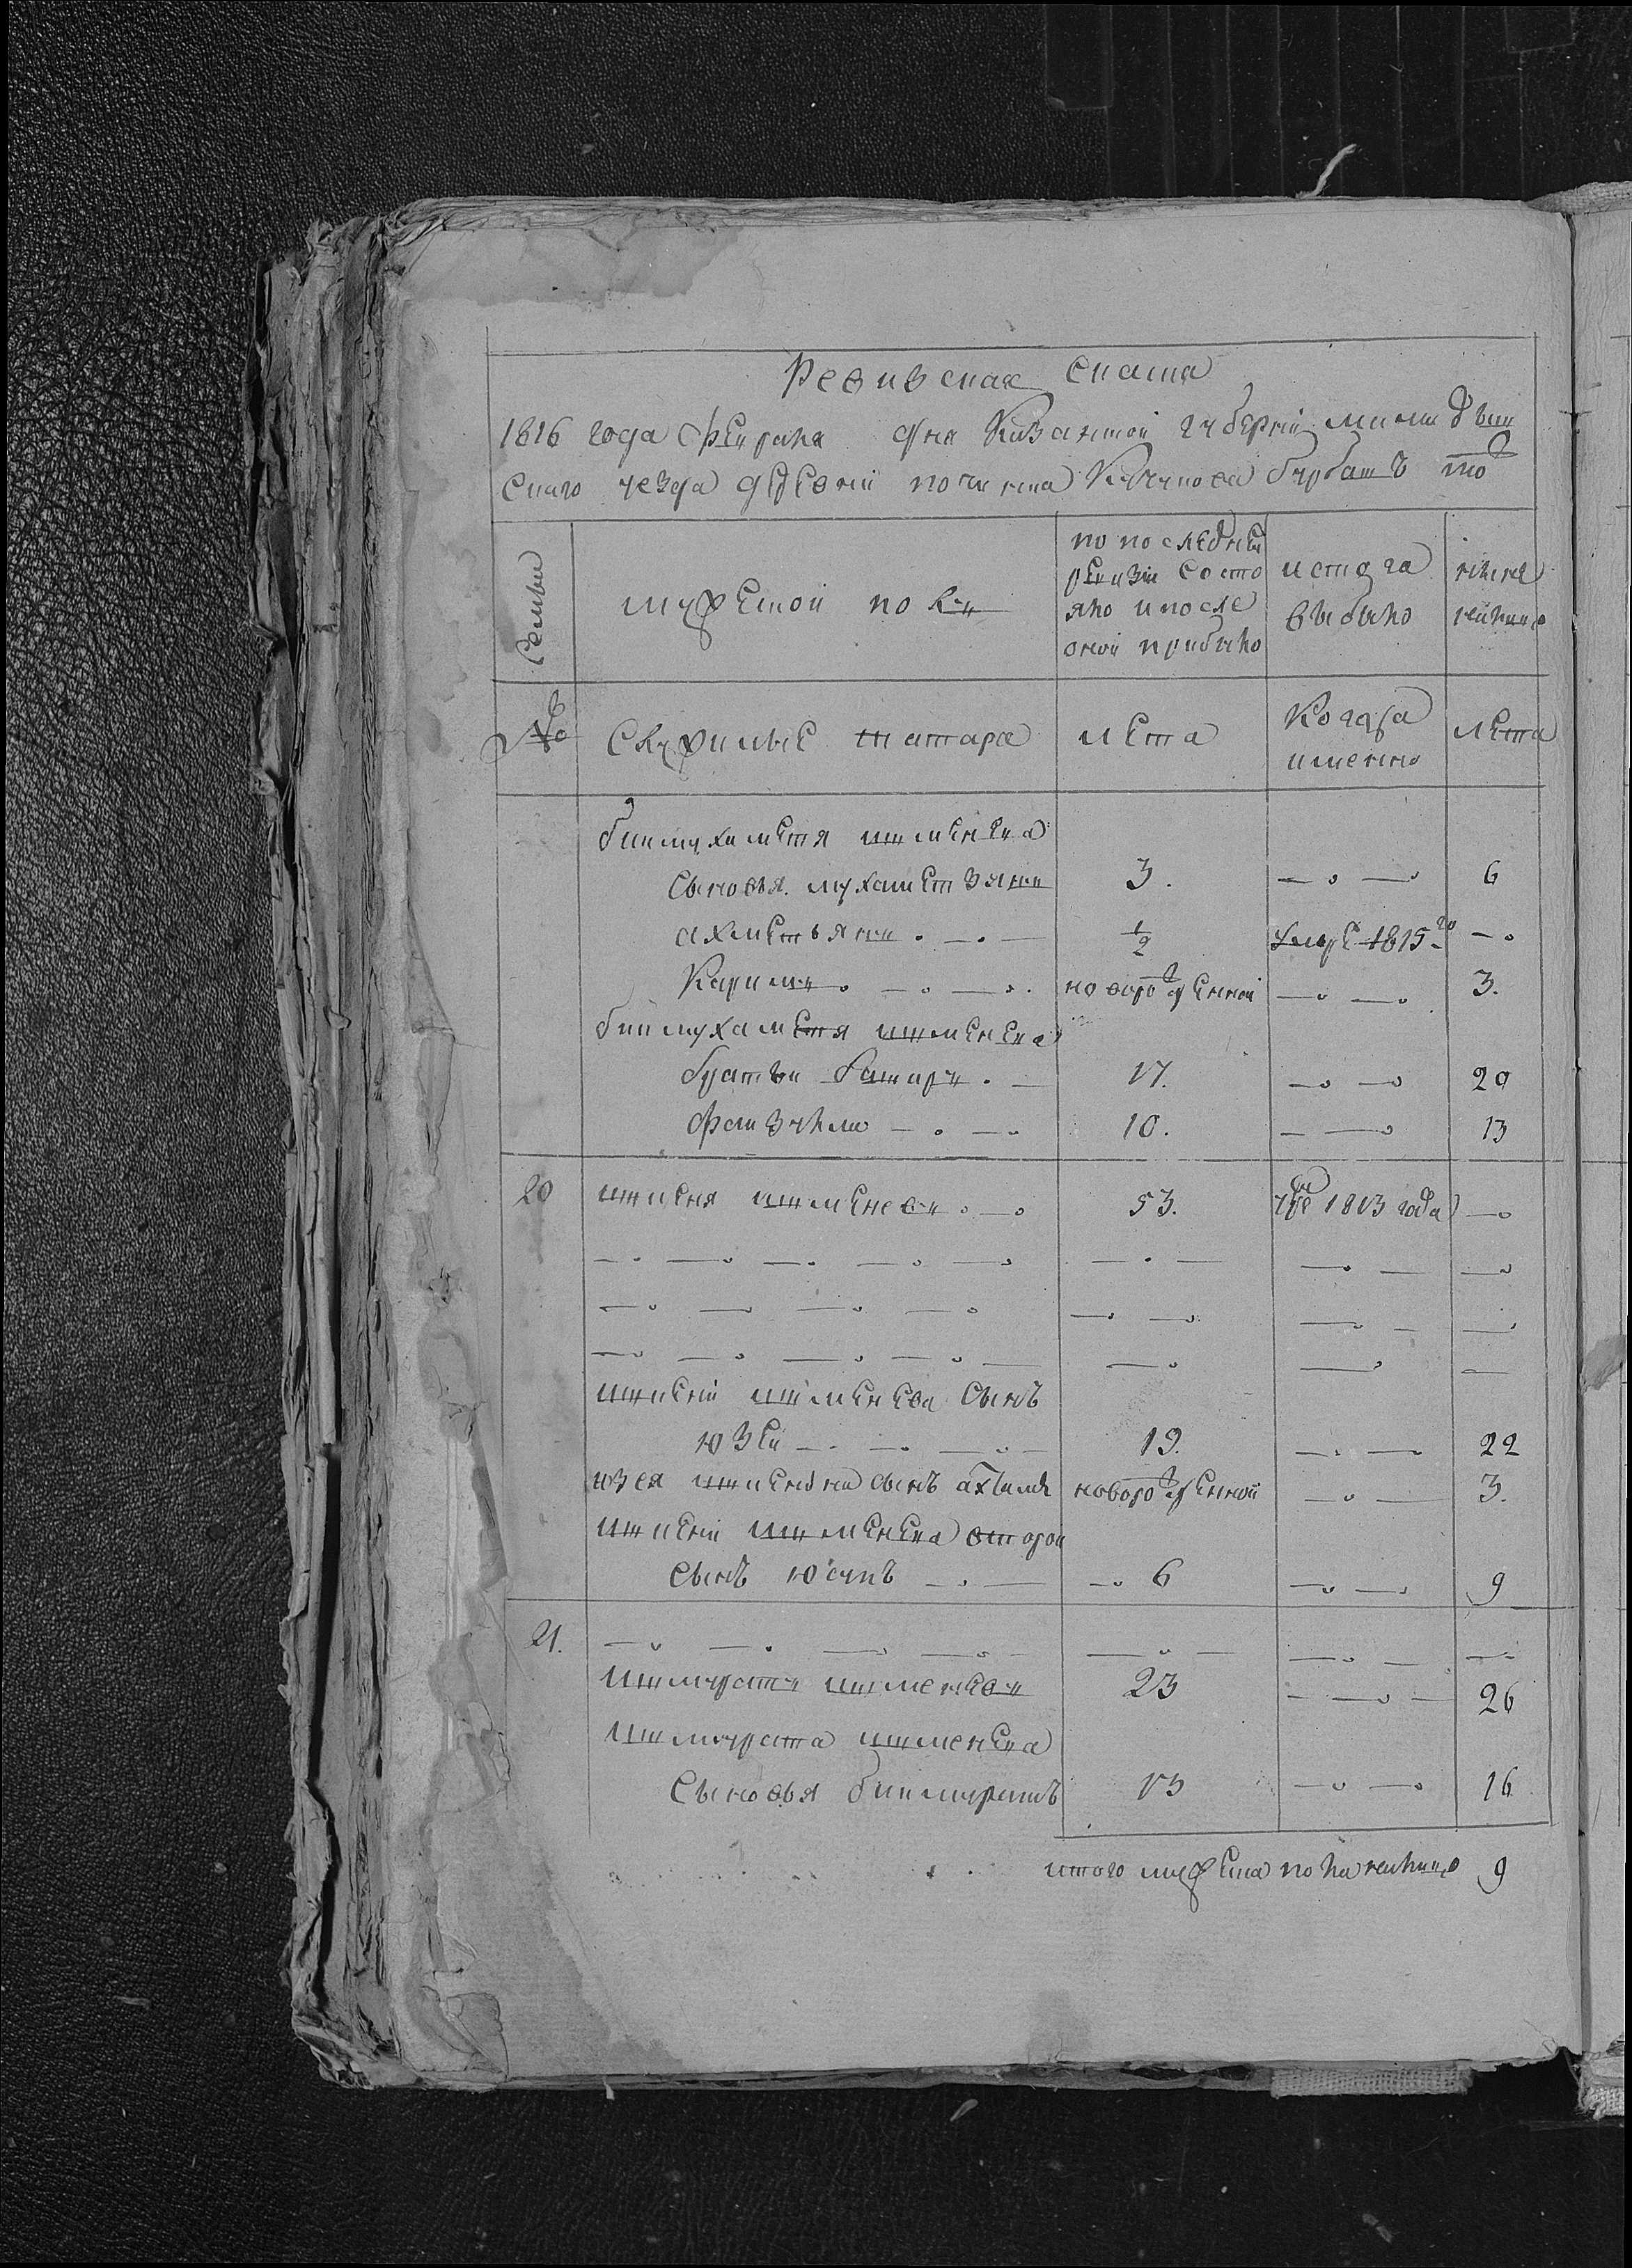 Ревизская скаска
1816 года февраля дня Казанской губернии мамадыш
скаго уезда деревни починка Кучукова бурбашъ то
Семьи
мужеской полъ
по последней
ревизии состо
яло и после
оной прибыло
исъ того
выбыло
ныне
налицо
№
служилые татара
лета
Когда
именно
лета
бикмухаметя ишменева
сыновья мухаметзянъ 3. 6
ахметьянъ ½ умре 1815го
Каримъ новорожденной 3.
бикмухаметя ишменева
братьи 17. 20
фейзулла 10. 13
20 ишменевъ 53. уме 1813 года
ишменева сынъ
юзей 19. 22
юзея сынъ новорожденной 3.
ишменева второй
сынъ юсупъ 6 9
21. ишмуратъ ишменевъ 23 26
ишмурата ишменева
сыновья бикмуратъ 13 16
итого мужеска пола налицо 9